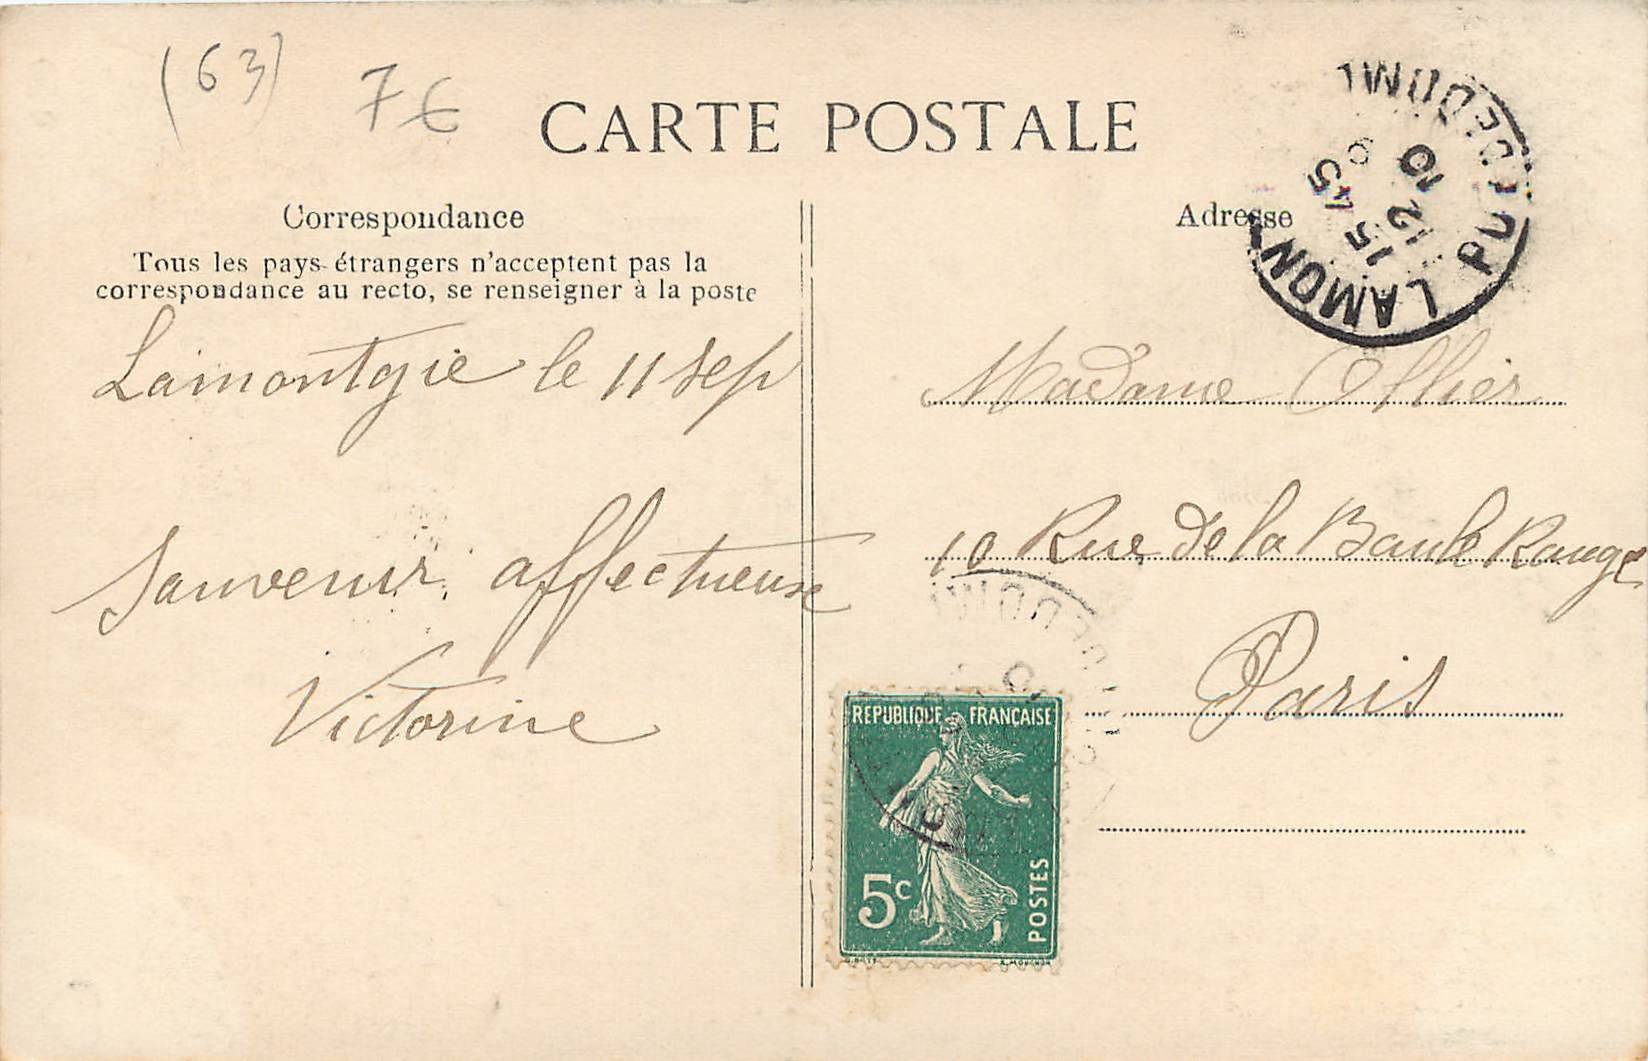 (63) 7€
CARTE POSTALE
Correspondance
Tous les pays étrangers n'acceptent pas la
correspondance au recto, se renseigner à la poste
Lamontgie le 11 sep
Souvenir affectueux
Victorine
Adresse
Madame Ollier
10 Rue de la Baule Rouge
Paris
LAMON PUY DE DOME
15 45
12
10
REPUBLIQUE FRANÇAISE
5c
POSTES